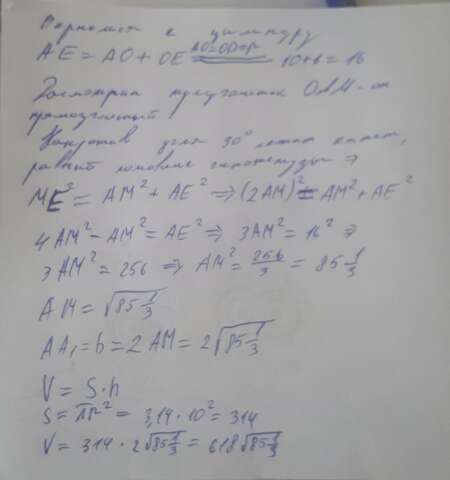 Вернемся к цилиндру
AE = AO + OE AO=OD=r 10+6 = 16
Рассмотрим треугольник он
прямоугольный
Напротив угла 30° лежит катет,
равный половине гипотенузы ⇒
ME² = AM² + AE² ⇒ (2AM)² = AM² + AE²
4AM² - AM² = AE² ⇒ 3AM² = 16² ⇒
3AM² = 256 ⇒ AM² = 256/3 = 85 1/3
AM = √85 1/3
AA₁ = h = 2AM = 2√85 1/3
V = S·h
S = πR² = 3,14·10² = 314
V = 314 · 2√85 1/3 = 618√85 1/3